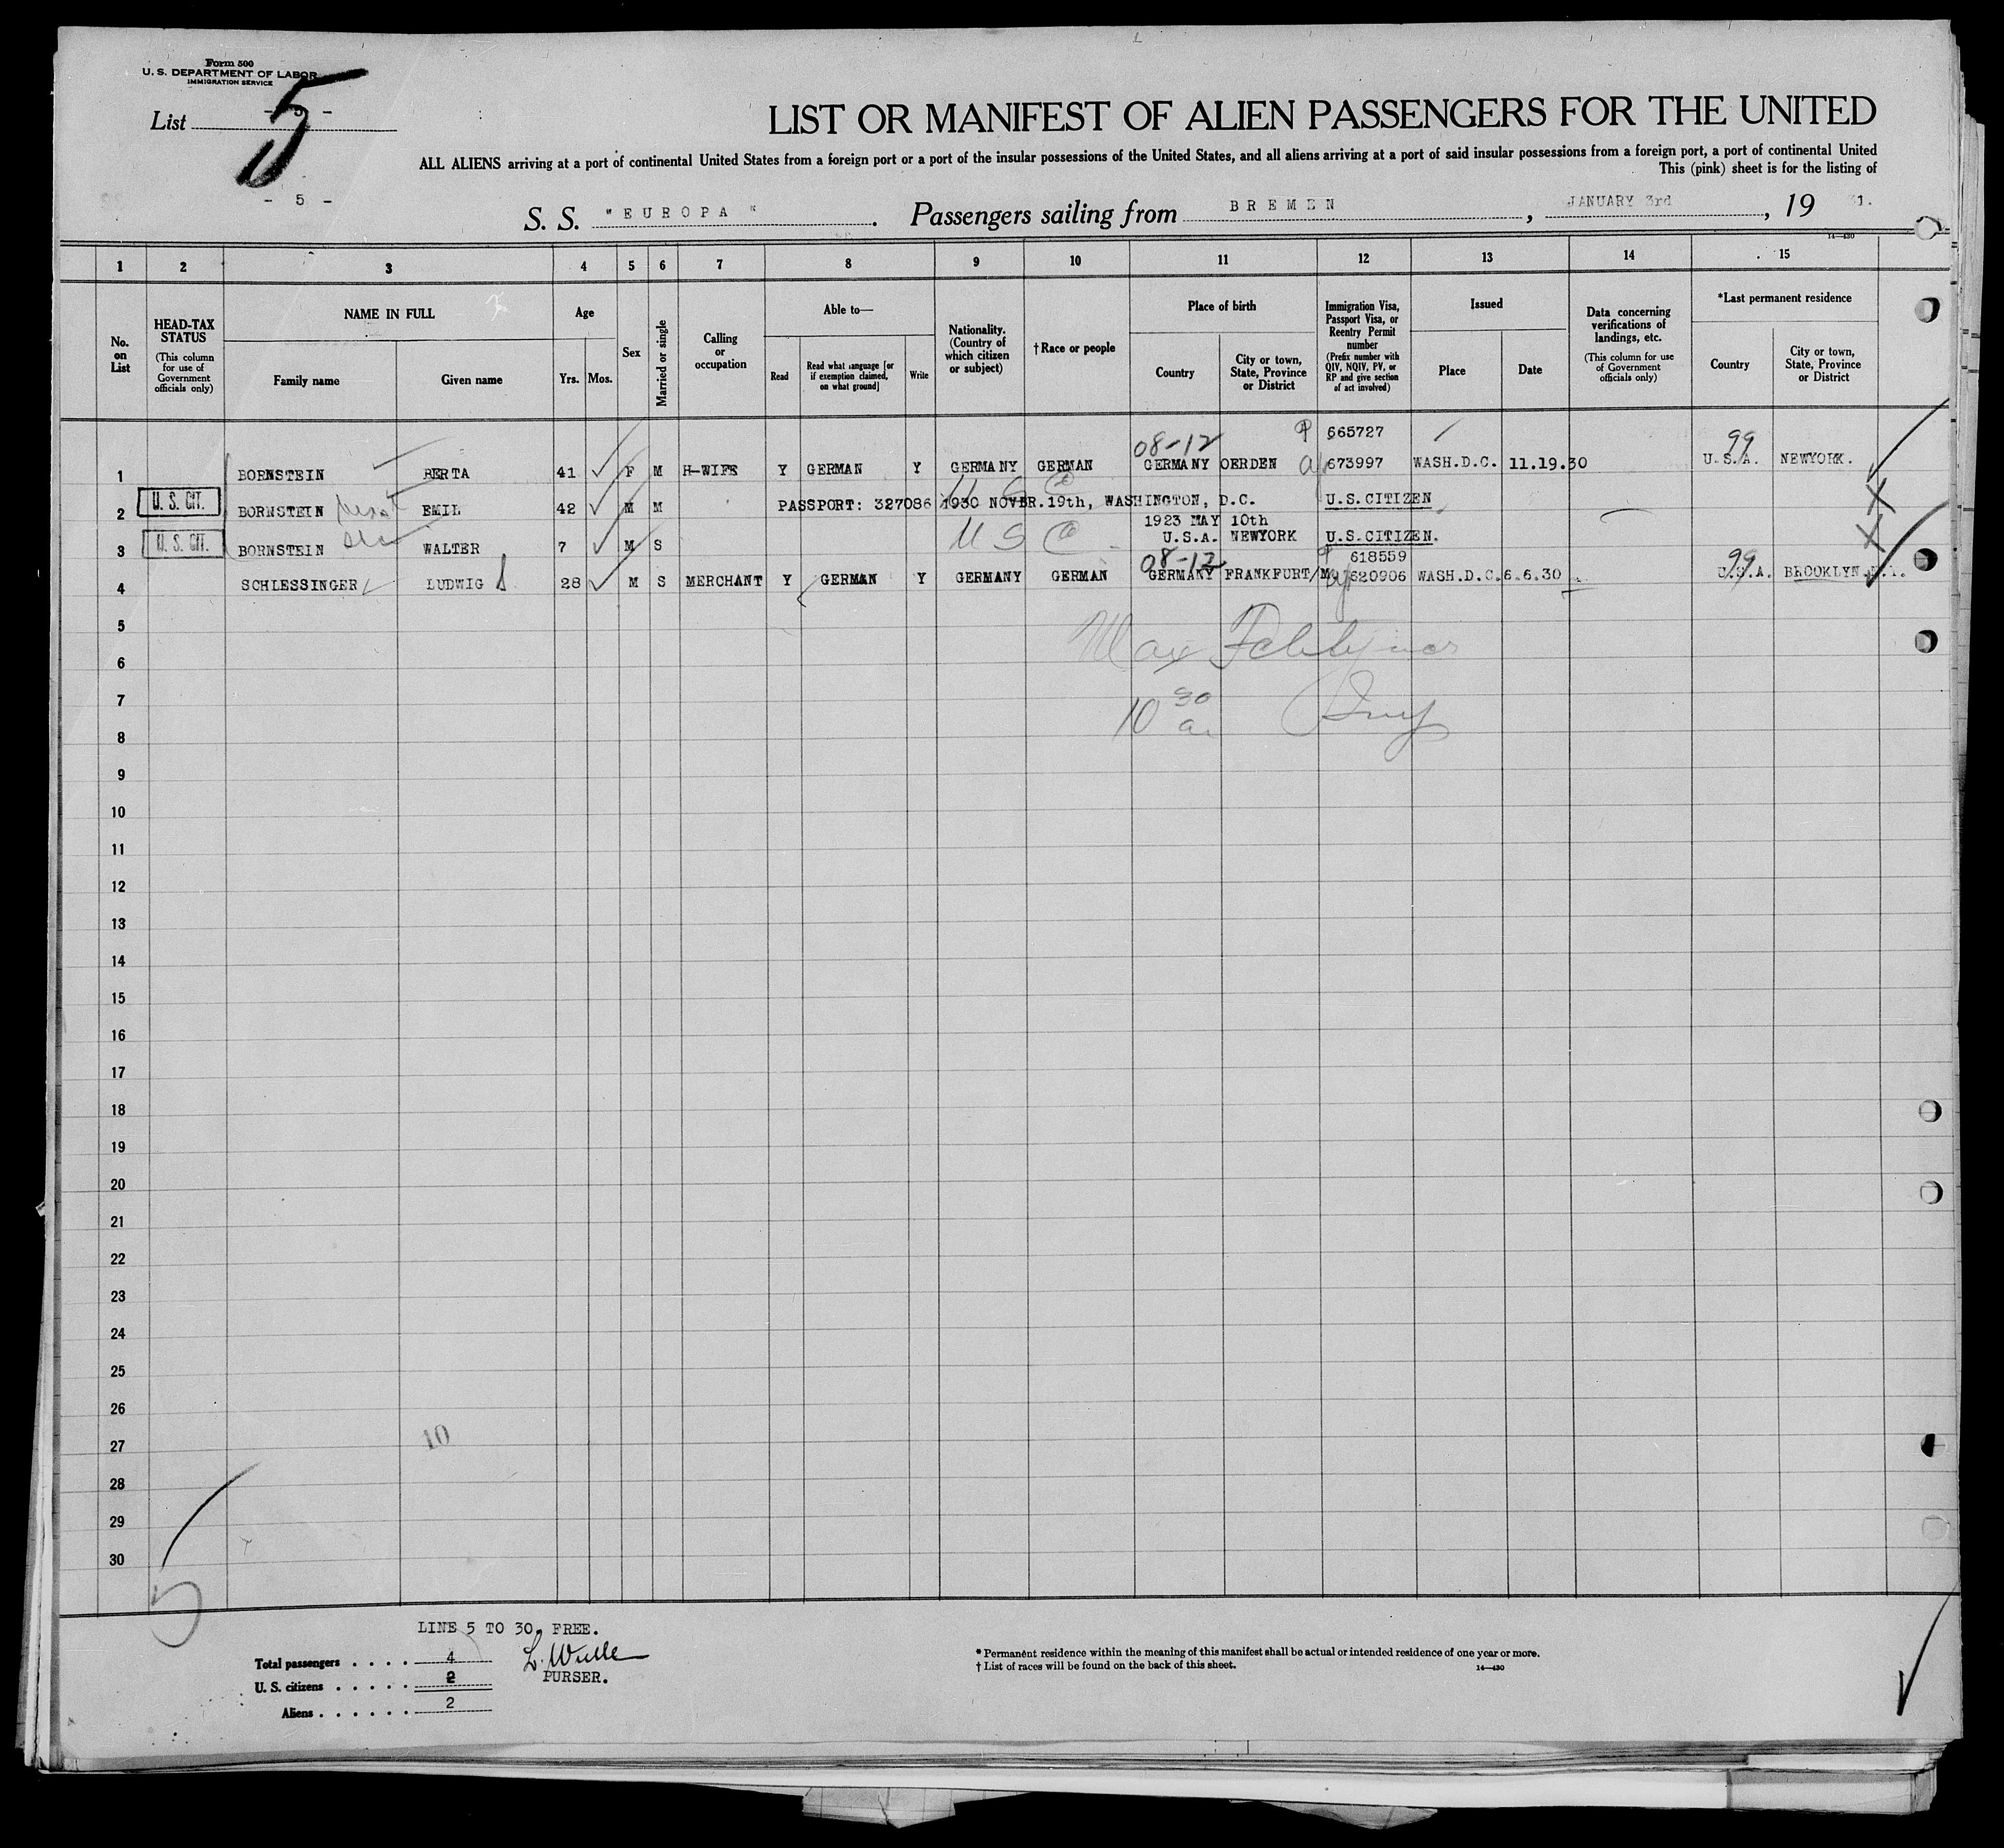 Form 500
U. S. DEPARTMENT OF LABOR
IMMIGRATION SERVICE
List - 5 -
5
LIST OR MANIFEST OF ALIEN PASSENGERS FOR THE UNITED
ALL ALIENS arriving at a port of continental United States from a foreign port or a port of the insular possessions of the United States, and all aliens arriving at a port of said insular possessions from a foreign port, a port of continental United
This (pink) sheet is for the listing of
- 5 -
S. S. "EUROPA". Passengers sailing from BREMEN, JANUARY 3rd, 19 31.
14—430
1 2 3 4 5 6 7 8 9 10 11 12 13 14 15
No. on List
HEAD-TAX STATUS
(This column for use of Government officials only)
NAME IN FULL
Family name Given name
Age
Yrs. Mos.
Sex
Married or single
Calling or occupation
Able to—
Read Read what language [or if exemption claimed, on what ground] Write
Nationality. (Country of which citizen or subject)
†Race or people
Place of birth
Country City or town, State, Province or District
Immigration Visa, Passport Visa, or Reentry Permit number
(Prefix number with QIV, NQIV, PV, or RP and give section of act involved)
Issued
Place Date
Data concerning verifications of landings, etc.
(This column for use of Government officials only)
*Last permanent residence
Country City or town, State, Province or District
08-12 665727 99
1 BORNSTEIN BERTA 41 F M H-WIFE Y GERMAN Y GERMANY GERMAN GERMANY OERDEN 673997 WASH.D.C. 11.19.30 U.S.A. NEWYORK.
U S C
2 U. S. CIT. BORNSTEIN EMIL 42 M M PASSPORT: 327086 1930 NOVBR.19th, WASHINGTON, D.C. U.S.CITIZEN
1923 MAY 10th
3 U. S. CIT. BORNSTEIN WALTER 7 M S U S C U.S.A. NEWYORK U.S.CITIZEN.
08-12 618559 99
4 SCHLESSINGER LUDWIG 28 M S MERCHANT Y GERMAN Y GERMANY GERMAN GERMANY FRANKFURT/M 620906 WASH.D.C. 6.6.30 U.S.A. BROOKLYN.N.Y.
5
Max
6
7
10 30 a.
8
9
10
11
12
13
14
15
16
17
18
19
20
21
22
23
24
25
26
27
10
28
29
30
5
LINE 5 TO 30 FREE.
Total passengers . . . . 4
U. S. citizens . . . . . 2
Aliens . . . . . . 2
PURSER.
* Permanent residence within the meaning of this manifest shall be actual or intended residence of one year or more.
† List of races will be found on the back of this sheet.
14—430